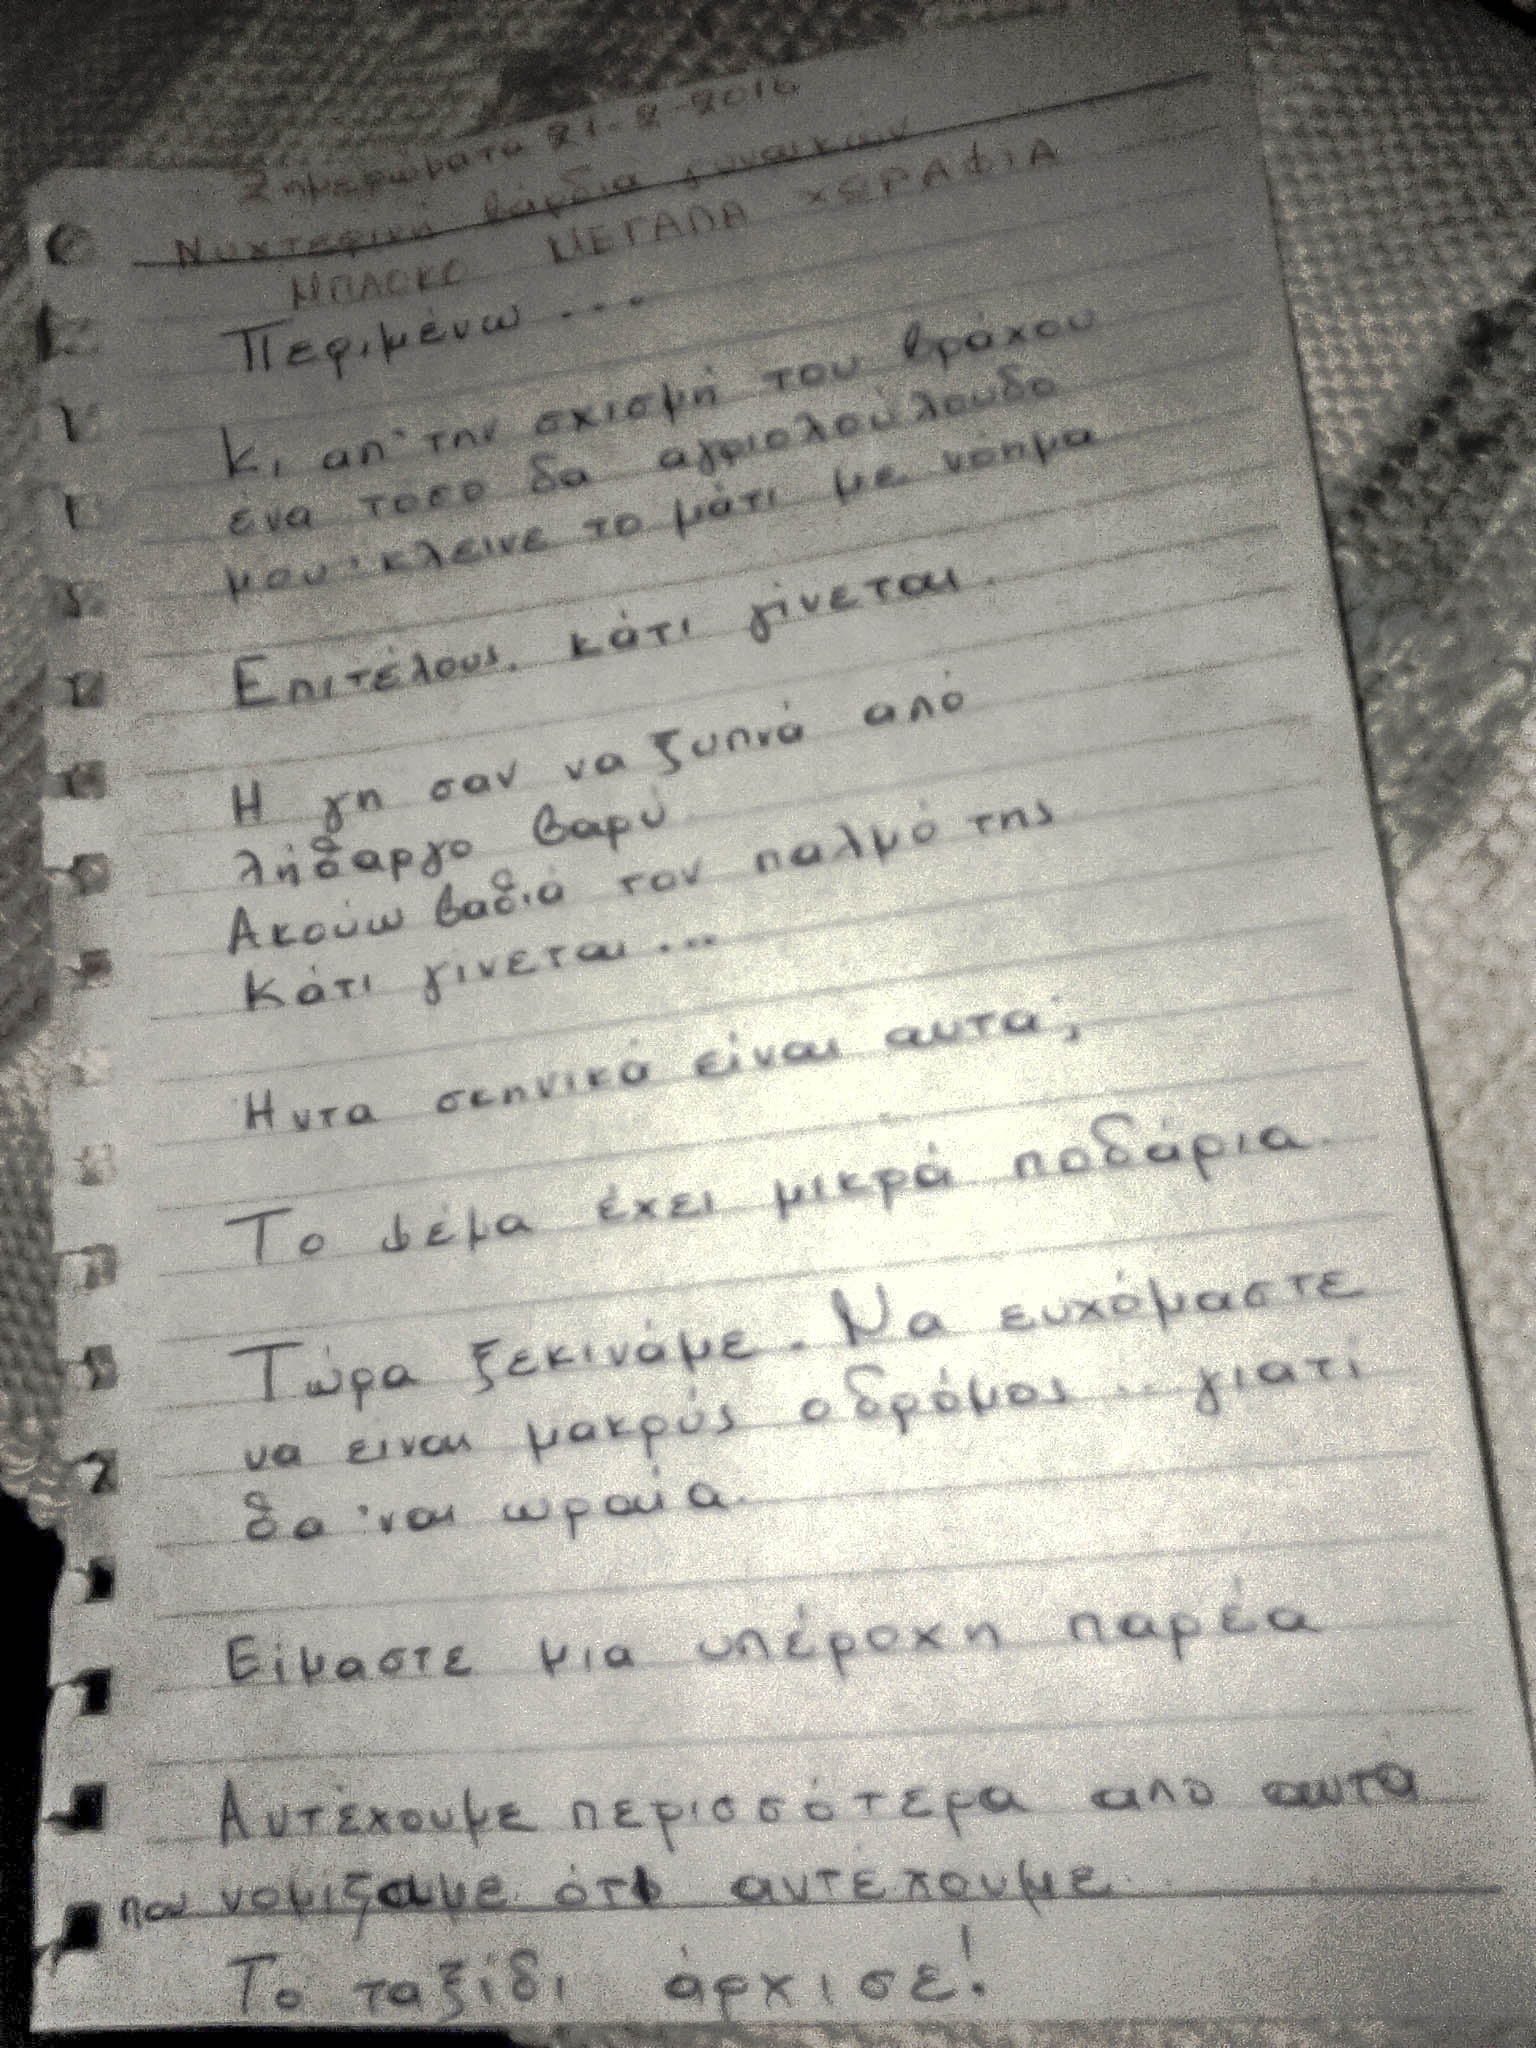 Ξημερώματα 21-2-2016
Νυχτερινή βάρδια γυναικών
ΜΠΛΟΚΟ ΜΕΓΑΛΑ ΧΩΡΑΦΙΑ
Περιμένω...
Κι απ' την σχισμή του βράχου
ένα τοσο δα αγριολούλουδο
μου 'κλεινε το μάτι με νόημα
Επιτέλους. κάτι γίνεται.
Η γη σαν να ξυπνά από
λήθαργο βαρύ
Ακούω βαθιά τον παλμό της
Κάτι γίνεται...
Η ντα σκηνικά είναι αυτα;
Το ψέμα έχει μικρά ποδάρια.
Τώρα ξεκινάμε. Να ευχόμαστε
να ειναι μακρύς ο δρόμος... γιατί
θα 'ναι ωραία.
Είμαστε μια υπέροχη παρέα
Αντέχουμε περισσότερα απο αυτά
που νομιζαμε ότι αντέχουμε.
Το ταξίδι άρχισε!